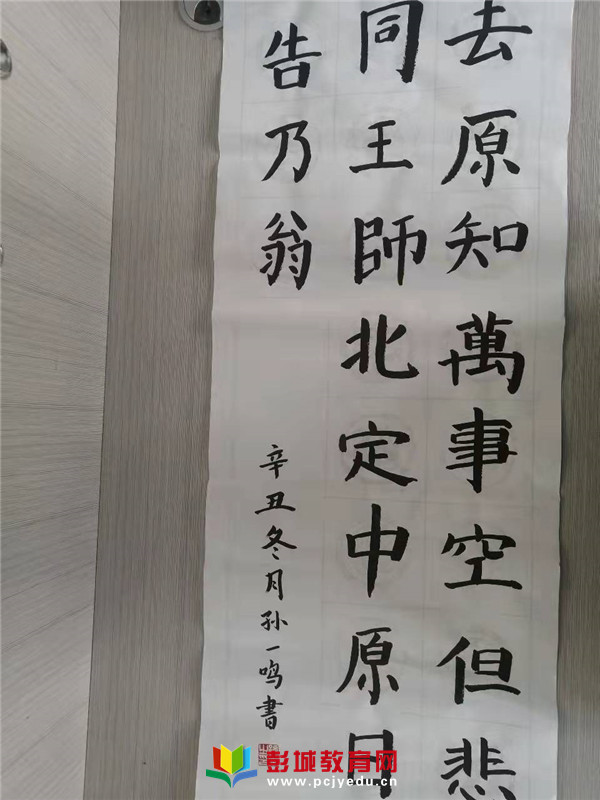 去原知萬事空但悲
同王師北定中原日
告乃翁
辛丑冬月孙一鸣書
彭城教育网
www.pcjyedu.cn